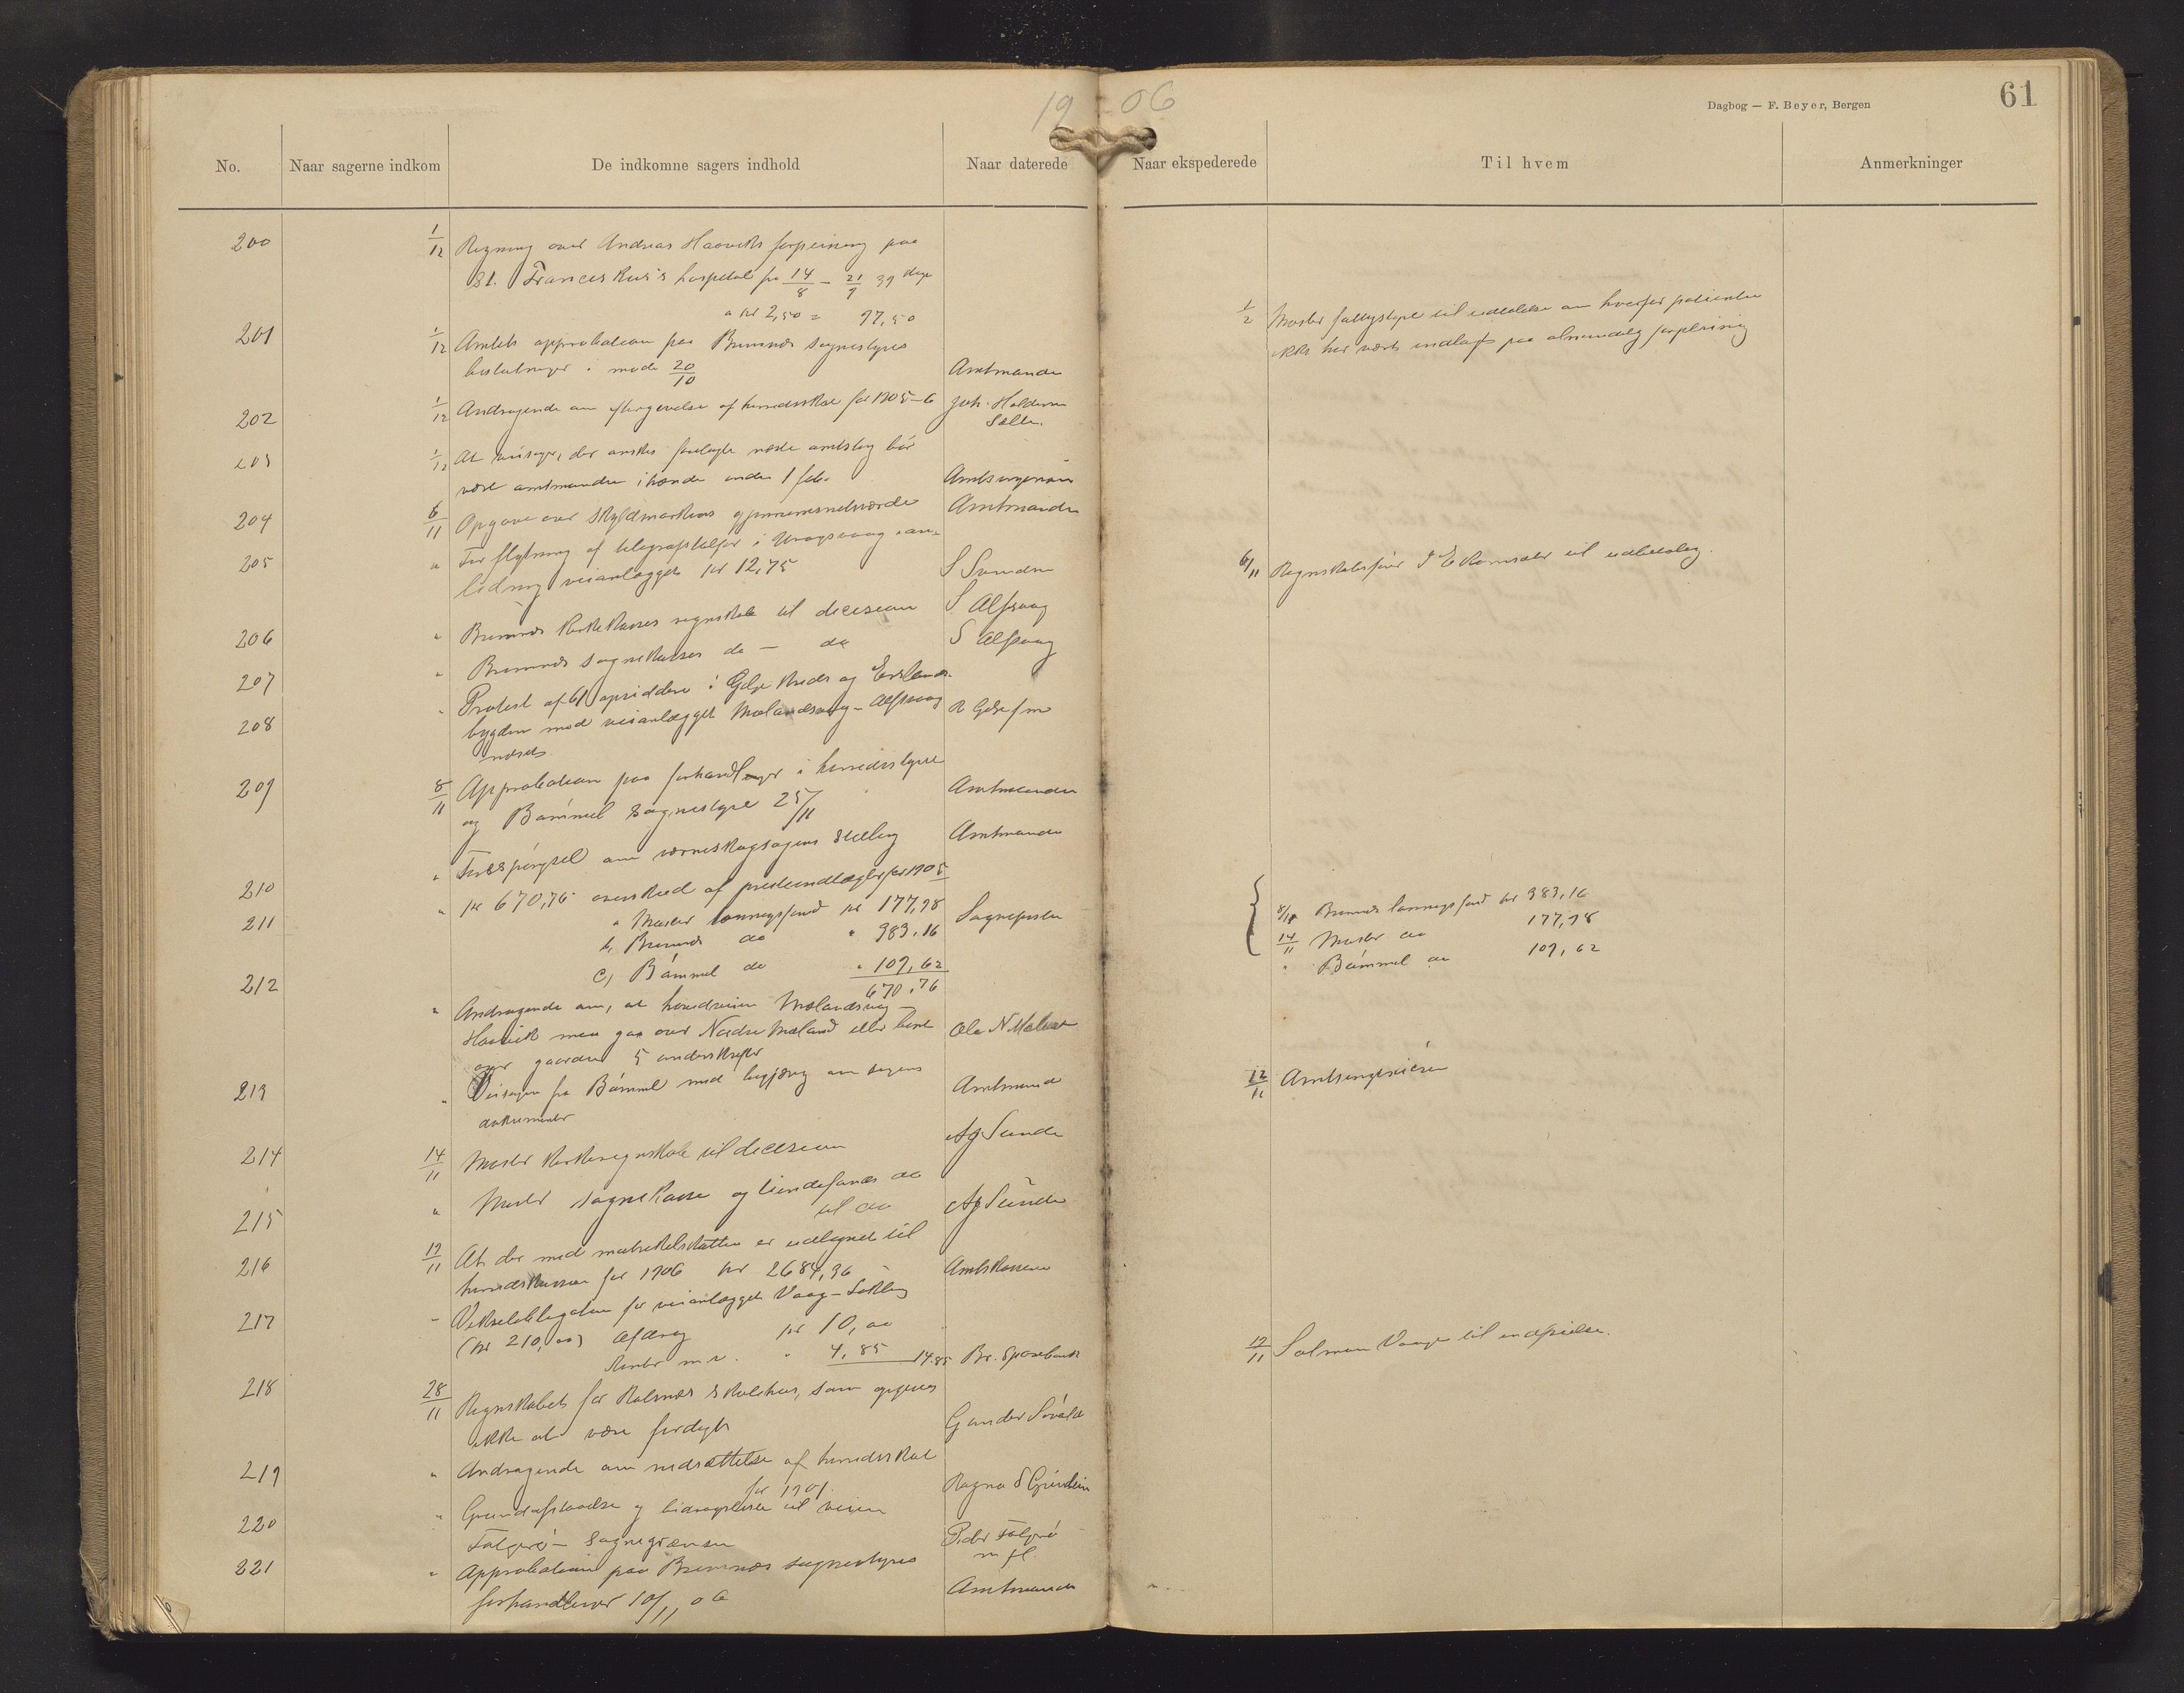 19-06
Dagbog — F. Beyer, Bergen
61
No.
Naar sagerne indkom
De indkomne sagers indhold
Naar daterede
Naar ekspederede
Til hvem
Anmerkninger
200 1/12 Regning over Andreas Haaviks forpleining paa
St. Franceskus's hospital fra 14/8 - 21/9 39 dage
a kr 2,50 = 97,50
1/2 Moster fattigstyre til udtalelse om hvorfor patienten
ikke har vært indlagt paa almindelig forpleining
201 1/12 Amtets approbation paa Bremnes sognestyres
beslutninger i møde 20/10 Amtmanden
202 1/12 Andragende om eftergivelse af herredsskat for 1905-6 Joh. Haldorsen
Sælen.
203 1/12 At veisager, der ønskes forelagte næste amtsting bør
være amtmanden ihænde inden 1 feb. Amtsingeniøren
204 6/11 Opgave over skyldmarkens gjennemsnitsværdi Amtmanden
205 " For flytning af telegrafstolper i Uragsvaag i an-
ledning veianlægget kr 12,75 S Svendsen
6/11 Regnskabsfører J E Rommsæter til udbetaling.
206 " Bremnes kirkekasses regnskab til decision S Alfsvaag
207 " Bremnes sognekasses do — do S Alfsvaag
208 " Protest af 61 opsiddere i Gilje kreds og Eidslands-
bygden mod veianlægget Mælandsvaag - Alfsvaag R Gilje f m
209 8/11 Approbation paa forhandlinger i herredsstyre
og Bømmel sognestyre 25/11 Amtmanden
210 " Forespørgsel om værneskogsagens stilling Amtmanden
211 " kr 670,76 overskud af presteindtægter for 1905
a Moster lønningsfond kr 177,98
b, Bremnes do " 383,16 Sognepresten
c, Bømmel do " 109,62
670,76
8/11 Bremnes lønningsfond kr 383,16
14/11 Moster do 177,98
" Bømmel do 109,62
212 " Andragende om, at hovedveien Mælandsvaag -
Haavik maa gaa over Nordre Mæland eller bent
over gaarden 5 underskrifter Ole N Mæland
213 " Veisagen fra Bømmel med begjæring om sagens
dokumenter Amtmand
12/11 Amtsingeniøren
214 14/11 Moster kirkeregnskab til decision Aj Sunde
215 " Moster sognekasse og tiendefonds do
til do Aj Sunde
216 17/11 At der med matrikelskatten er udlignet til
herredskassen for 1906 kr 2684,36 Amtskassereren
217 " Vekselobligation for veianlægget Vaag - Sækling
(kr 210,00) Afdrag kr 10,00
Renter m.v. " 4,85 14.85 Br. Sparebank
17/11 Salmon Vaage til indfrielse.
218 28/11 Regnskabet for Kalnes skolehus, som opgives
ikke at være ferdigt Gunder Sivald
219 " Andragende om nedsættelse af herredsskat
for 1901. Ragna S Grindheim
220 " Grundafstaaelse og bidragsliste til veien
Folgerø - sognegrænsen Peder Folgerø
m fl.
221 " Approbation paa Bremnes sognestyres
forhandlinger 10/11 06 Amtmanden